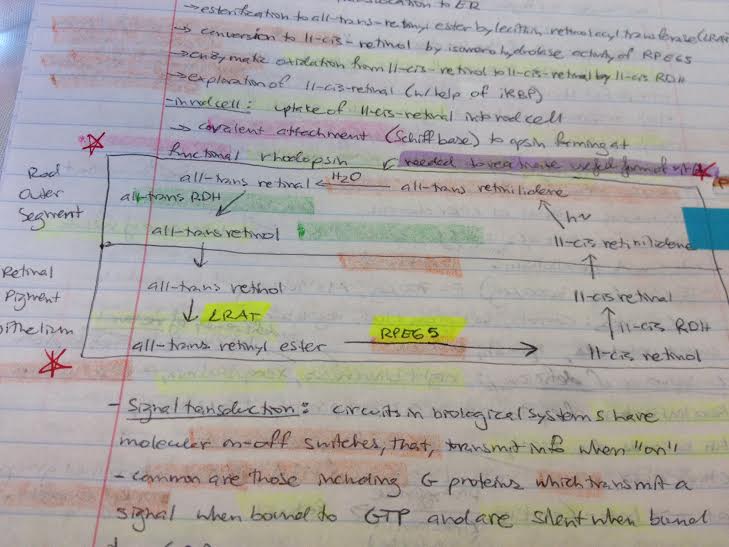 → esterification to all-trans-retinyl ester by lecithin retinol acyl transferase (LRAT
→ conversion to 11-cis-retinol by isomerohydrolase activity of RPE65
→ enzymatic oxidation from 11-cis-retinol to 11-cis-retinal by 11-cis RDH
→ exploration of 11-cis-retinal (w/help of iRBP)
- in rod cell: uptake of 11-cis-retinal into rod cell
→ covalent attachment (Schiff base) to opsin forming at
functional rhodopsin
needed to reactivate useful form of
Rod
Outer
Segment
all-trans retinal ← H2O all-trans retinilidene
all-trans RDH
hν
all-trans retinol
11-cis retinilidene
Retinal
Pigment
all-trans retinol
11-cis retinal
LRAT
RPE65
11-cis RDH
all-trans retinyl ester → 11-cis retinol
- Signal transduction: circuits in biological systems have
molecular on-off switches, that, transmit info when "on"
- common are those including G proteins which transmit a
signal when bound to GTP and are silent when bound